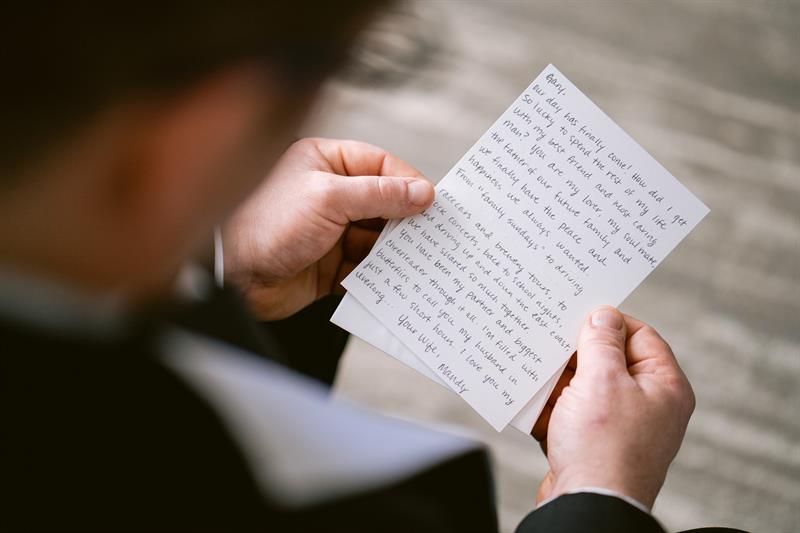 Gary,
our day has finally come! How did I get
so lucky to spend the rest of my life
with my best friend and most caring
man? You are my lover, my soul mate,
the father of our future family and
we finally have the peace and
happiness we always wanted.
From "family sundays" to driving
racecars and brewery tours, to
rock concerts, back to school nights,
and driving up and down the east coast,
we have shared so much together.
You have been my partner and biggest
cheerleader through it all. I'm filled with
butterflies to call you my husband in
just a few short hours. I love you my
everlong...
Your Wife, Mandy